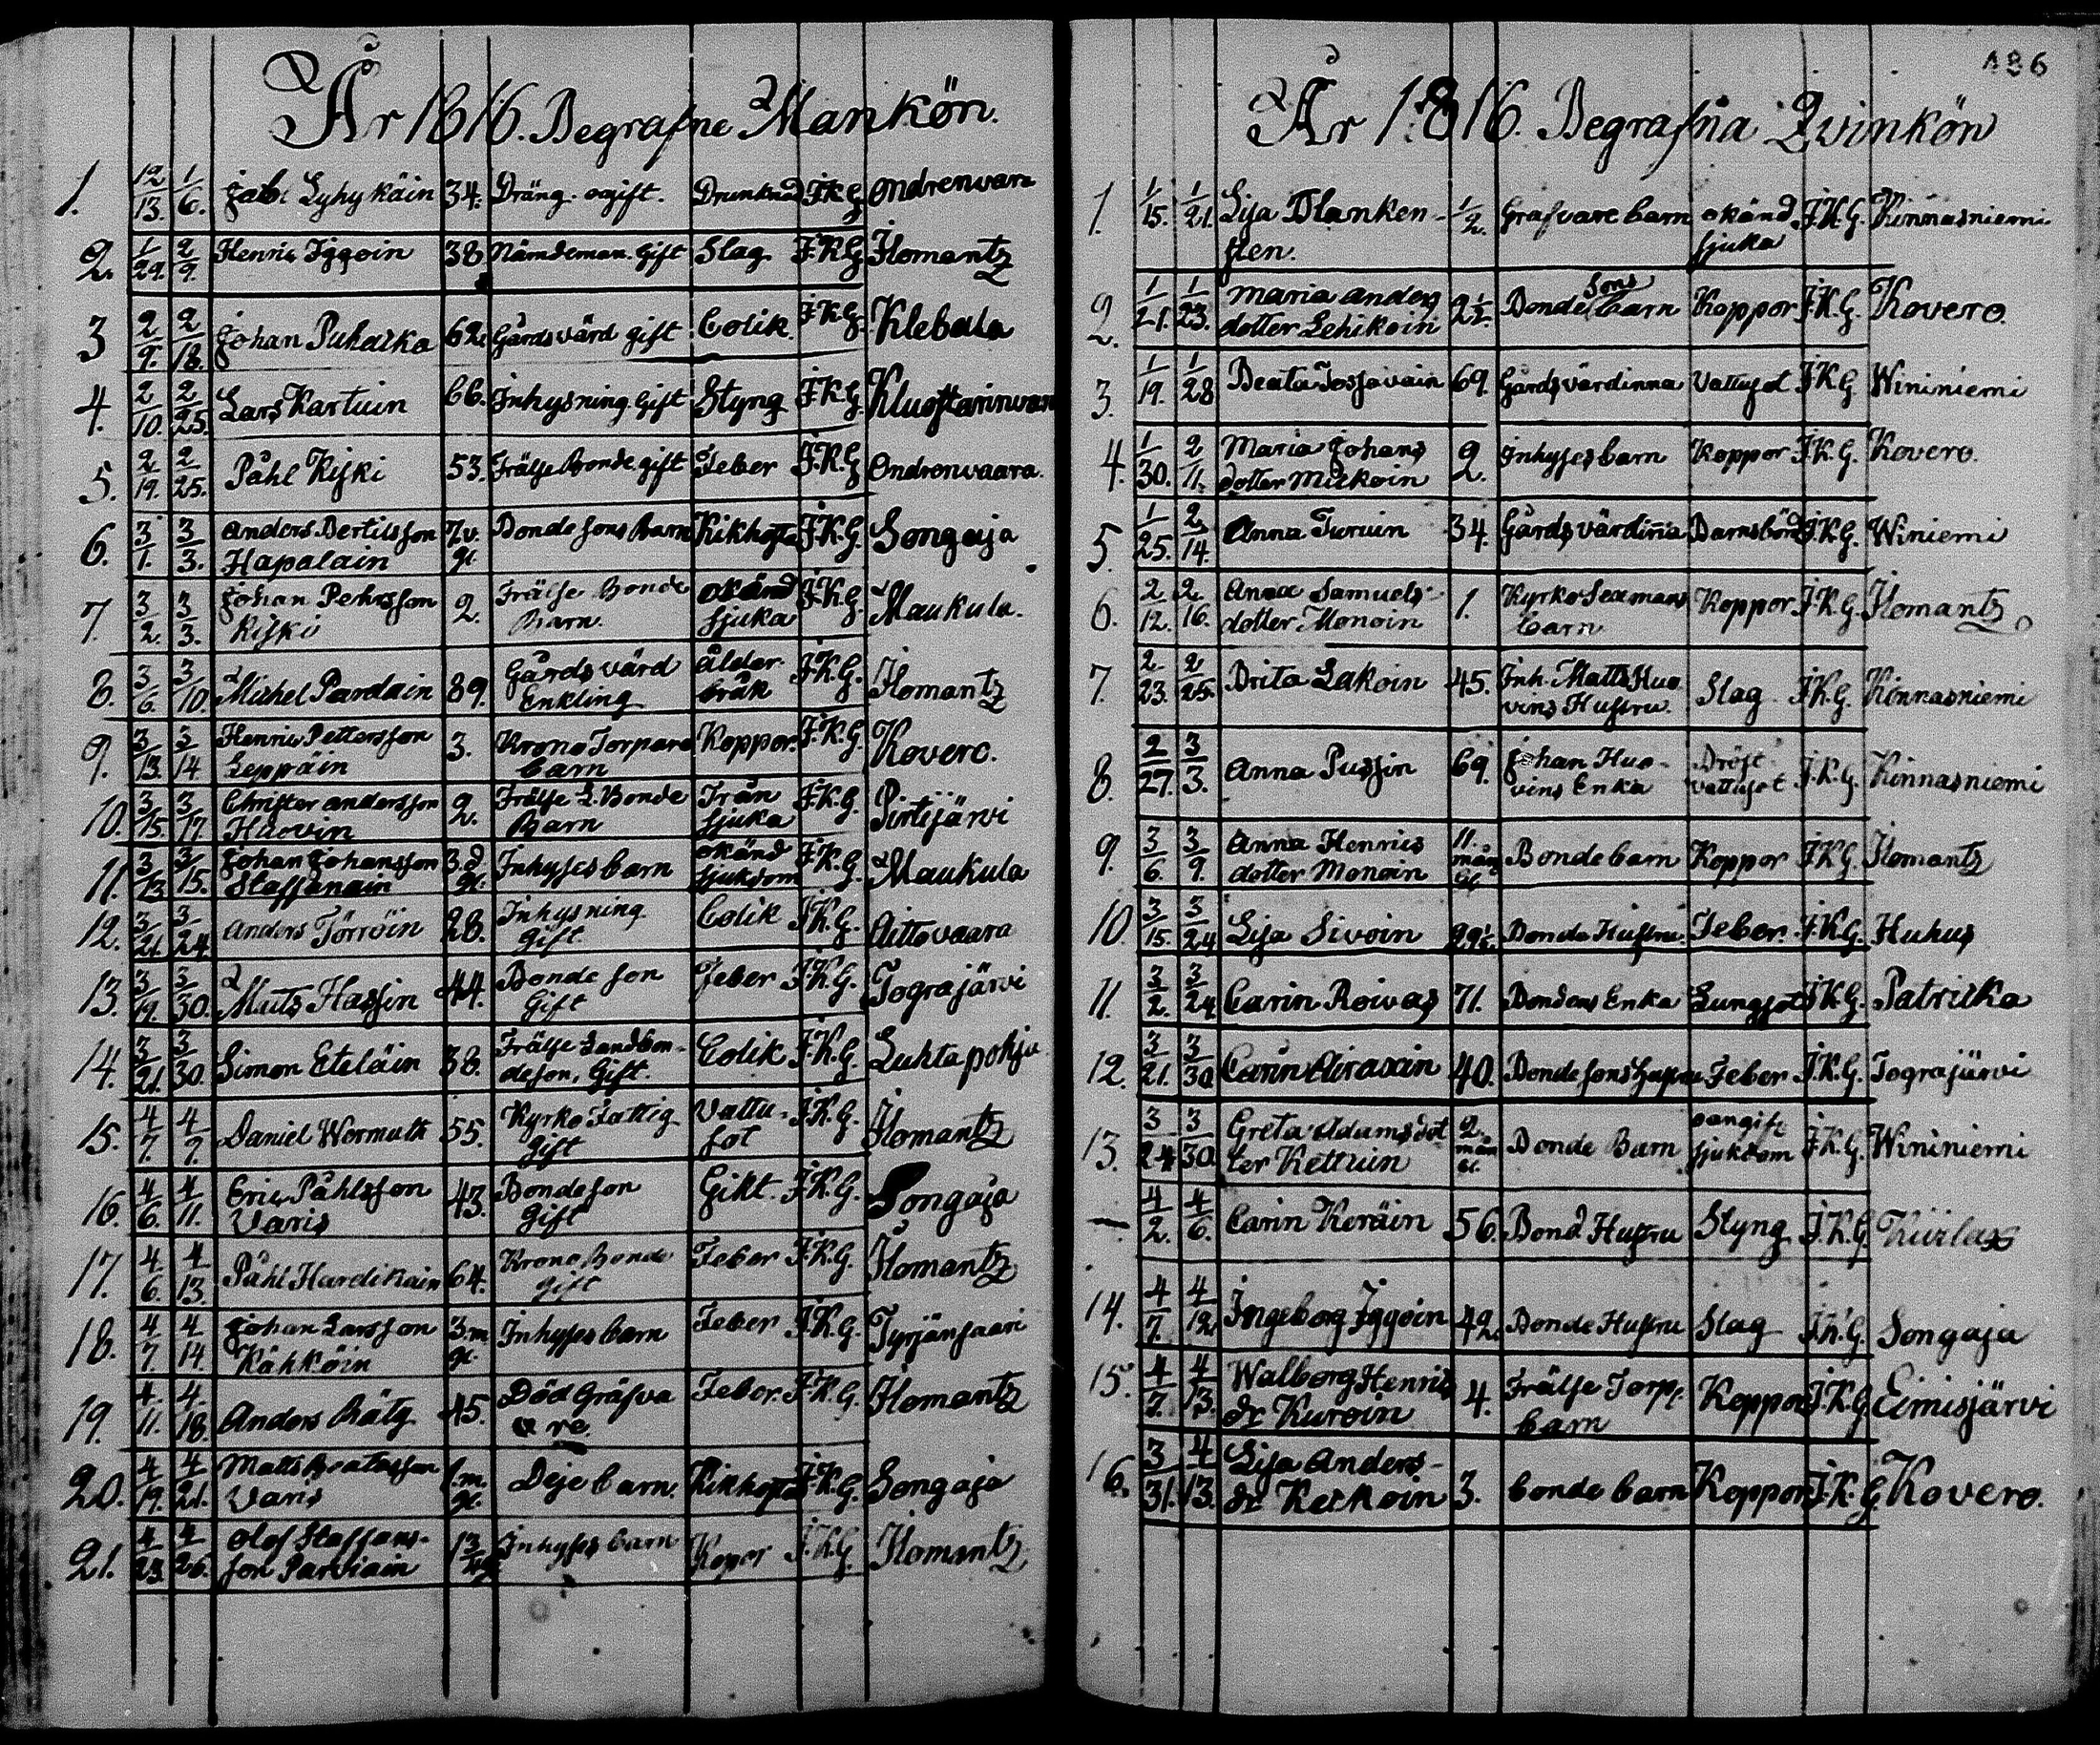 År 1816. Begrafne Mankön.
1. 12/13. 1/6. Jab. Lyhykäin 34. Dräng. ogift. Drunknad J.K.G. Ondrenvara
2. 1/29. 2/9. Henric Iggoin 38 Nämdeman. Gift Slag J.K.G. Ilomantz
3 2/9. 2/18. Johan Puhakka 62. Gårdsvärd gift Colik. J.K.G. Klebala
4. 2/10. 2/25. Lars Kartuin 66. Inhysning. Gift Styng J.K.G.
5. 2/19. 2/25. Påhl Kiski 53. Frälse Bonde gift Feber J.K.G. Ondronvaara.
6. 3/1. 3/3. Anders Bertilsson 7.v. Bondesons Barn Kikhosta J.K.G. Songaja
Hapalain gl.
7. 3/2. 3/3. Johan Pehrsson 2. Frälse Bonde okänd J.K.G. Maukula.
Kiski Barn. sjuka
8. 3/6. 3/10. Michel Pardain 89. Gårdsvärd ålder J.K.G. Ilomantz
Enkling bråk
9. 3/13. 3/14 Henric Pettersson 3. Krono Torpare Koppor. J.K.G. Kovero.
Leppäin barn
10. 3/15. 3/17. Christer andersson 2. Frälse L. Bonde Trån J.K.G. Pirtijärvi
Huovin Barn sjuka
11. 3/13 3/15. Johan Johansson 3.d Inhyses barn okänd J.K.G. Maukula
Staffanain gl. sjukdom
12. 3/21. 3/24. Anders Törröin 28. Inhysning Colik J.K.G. Aittovaara
gift.
13. 3/19. 3/30. Mats Hassin 44. Bonde son Feber J.K.G. Tograjärvi
Gift
14. 3/21. 3/30. Simon Eteläin 38. Frälse Landbon- Colik J.K.G. Luhtapohja
deson, Gift.
15. 4/7. 4/7. Daniel Wormuth 55. Kyrko Fattig Vattu- J.K.G. Ilomantz
Gift sot
16. 4/6. 4/11. Eric Påhlsson 43. Bondeson Gikt. J.K.G. Songaja
Varis Gift
17. 4/6. 4/13. Påhl Hardikain 64. Krono Bonde Feber J.K.G. Ilomantz
gift
18. 4/7. 4/14. Johan Larsson 3.m Inhyses barn Feber J.K.G. Tyrjänsaari
Kähköin gl.
19. 4/11. 4/18. Anders Rätg 45. Död Gräfva Feber. J.K.G. Ilomantz
re.
20. 4/19. 4/21. Matts Beatasson 1.m. Deje barn. Kikhosta J.K.G. Songaja
Varis gl.
21. 4/23. 4/26. Olof Staffans- Inhyses barn Kopor J.K.G. Ilomantz
son Parviain
186
År 1816. Begrafna Qvinkön
1. 1/15. 1/21. Lisa Blanken- 1/2. Grafvare barn okänd J.K.G. Kinnasniemi
sten. sjuka
2. 1/21. 1/23. Maria anders 2 1/2. Bonde Sons barn Koppor J.K.G. Kovero.
dotter Lehikoin
3. 1/19. 1/28 Beata Jossavain 69. Gårdsvärdinna Vattusot J.K.G. Wininiemi
4. 1/30. 2/11. Maria Johans 2. Inhyses barn Koppor J.K.G. Kovero.
dotter Mickoin
5. 1/25. 2/14. Anna Turuin 34. Gårdsvärdinna Barnsbörd J.K.G. Winiemi
6. 2/12. 2/16. Anna Samuels 1. Koppor J.K.G. Ilomantz
dotter Monoin barn
7. 2/23. 2/25. Brita Lakoin 45. Inh. Matts Huo Slag J.K.G. Kinnasniemi
vins Hustru.
8. 2/27. 3/3. Anna Pussin 69. Johan Huo- Bröst J.K.G. Kinnasniemi
vins Enka vattusot
9. 3/6. 3/9. Anna Henrics 11. Bonde barn Koppor J.K.G. Ilomantz
dotter Monoin mån gl.
10. 3/15. 3/24 Lisa Sivoin 29 1/2. Bonde Hustru. Feber. J.K.G. Huhus
11. 3/2. 3/24 Carin Roivas 71. Bondens Enka Lungsot J.K.G. Patricka
12. 3/21. 3/30 Carin Airavain 40. Bonde sons Hustru Feber J.K.G. Tograjärvi
13. 3/24 3/30 Greta Adams dot 2. Bonde Barn oangift J.K.G. Wininiemi
ter Kettuin mån gl. sjukdom
— 4/2. 4/6. Carin Keräin 56. Bond Hustru Styng J.K.G.
14. 4/7. 4/12 Ingeborg Iggoin 42. Bonde Hustru Slag J.K.G. Songaja
15. 4/7. 4/13. Walborg Henrics 4. Frälse Torp. Koppor J.K.G. Eimisjärvi
dr Kuroin barn
16. 3/31. 4/13. Lisa Anders- 3. bonde barn Koppor J.K.G. Kovero.
dr Keckoin